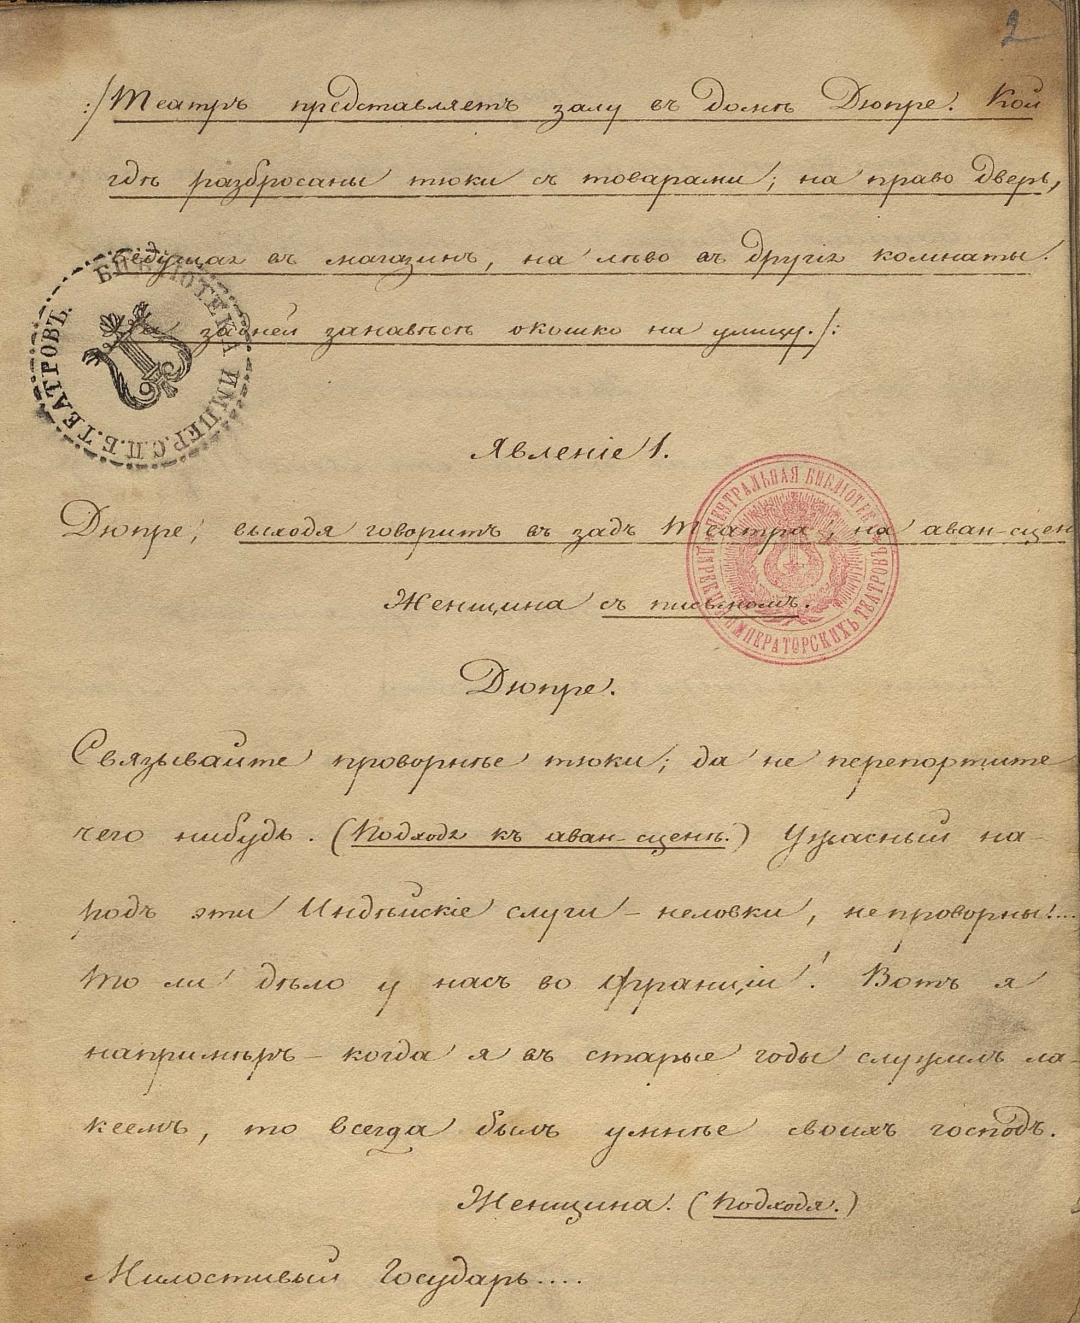 2
:/Театръ представляетъ залу въ домѣ Дюпре. Кой
гдѣ разбросаны тюки съ товарами; на право дверь,
ведущая въ магазинъ, на лѣво въ другія комнаты.
На задней занавѣсѣ окошко на улицу./:
БИБЛІОТЕКА ИМПЕР. С.П.Б. ТЕАТРОВЪ.
Явленіе 1.
ЦЕНТРАЛЬНАЯ БИБЛІОТЕКА ИМПЕРАТОРСКИХЪ ТЕАТРОВЪ
Дюпре, выходя говоритъ въ задъ театра, на аван-сцен
Женщина съ письмомъ.
Дюпре.
Связывайте проворнѣе тюки; да не перепортите
чего нибудь. (Подходя къ аван-сценѣ.) Ужасный на-
родъ эти Индѣйскіе слуги – неловки, непроворны!...
То ли дѣло у насъ во Франціи! Вотъ я
напримѣръ – когда я въ старые годы служилъ ла-
кеемъ, то всегда былъ умнѣе своихъ господъ.
Женщина. (Подходя.)
Милостивый Государь....